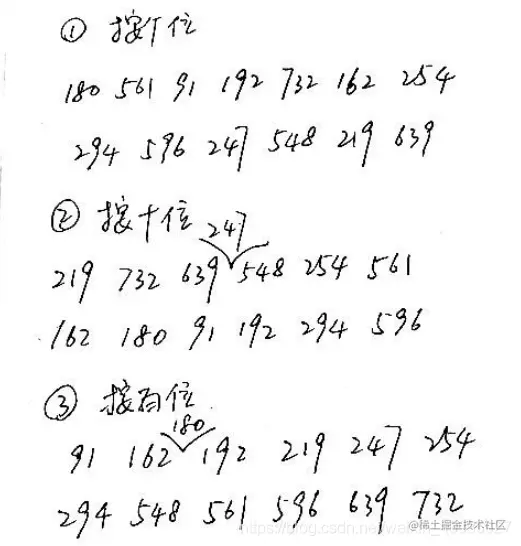 ① 按个位
180 561 91 192 732 162 254
294 596 247 548 219 639
② 按十位
247
219 732 639 548 254 561
162 180 91 192 294 596
③ 按百位
180
91 162 192 219 247 254
294 548 561 596 639 732
@稀土掘金技术社区